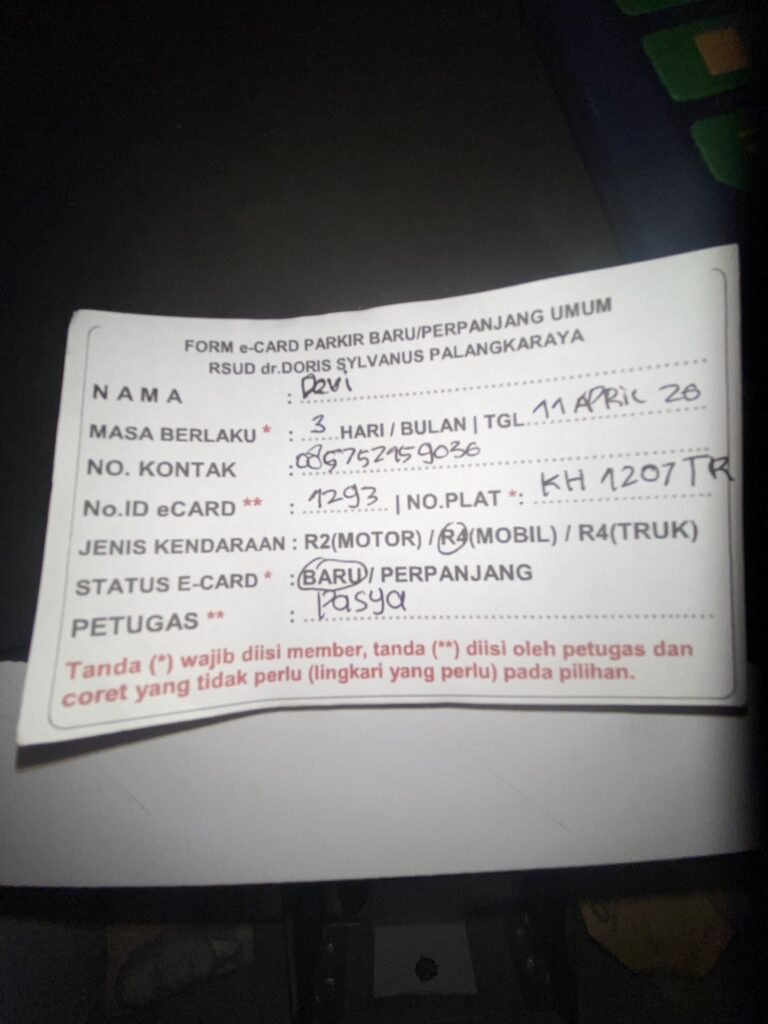 FORM e-CARD PARKIR BARU/PERPANJANG UMUM
RSUD dr.DORIS SYLVANUS PALANGKARAYA
NAMA : Devi
MASA BERLAKU * : 3 HARI / BULAN | TGL 11 APRIL 26
NO. KONTAK : 085752159036
No.ID eCARD ** : 1293 | NO.PLAT *: KH 1207 TR
JENIS KENDARAAN : R2(MOTOR) / R4(MOBIL) / R4(TRUK)
STATUS E-CARD * : BARU / PERPANJANG
PETUGAS ** : Pasya
Tanda (*) wajib diisi member, tanda (**) diisi oleh petugas dan
coret yang tidak perlu (lingkari yang perlu) pada pilihan.